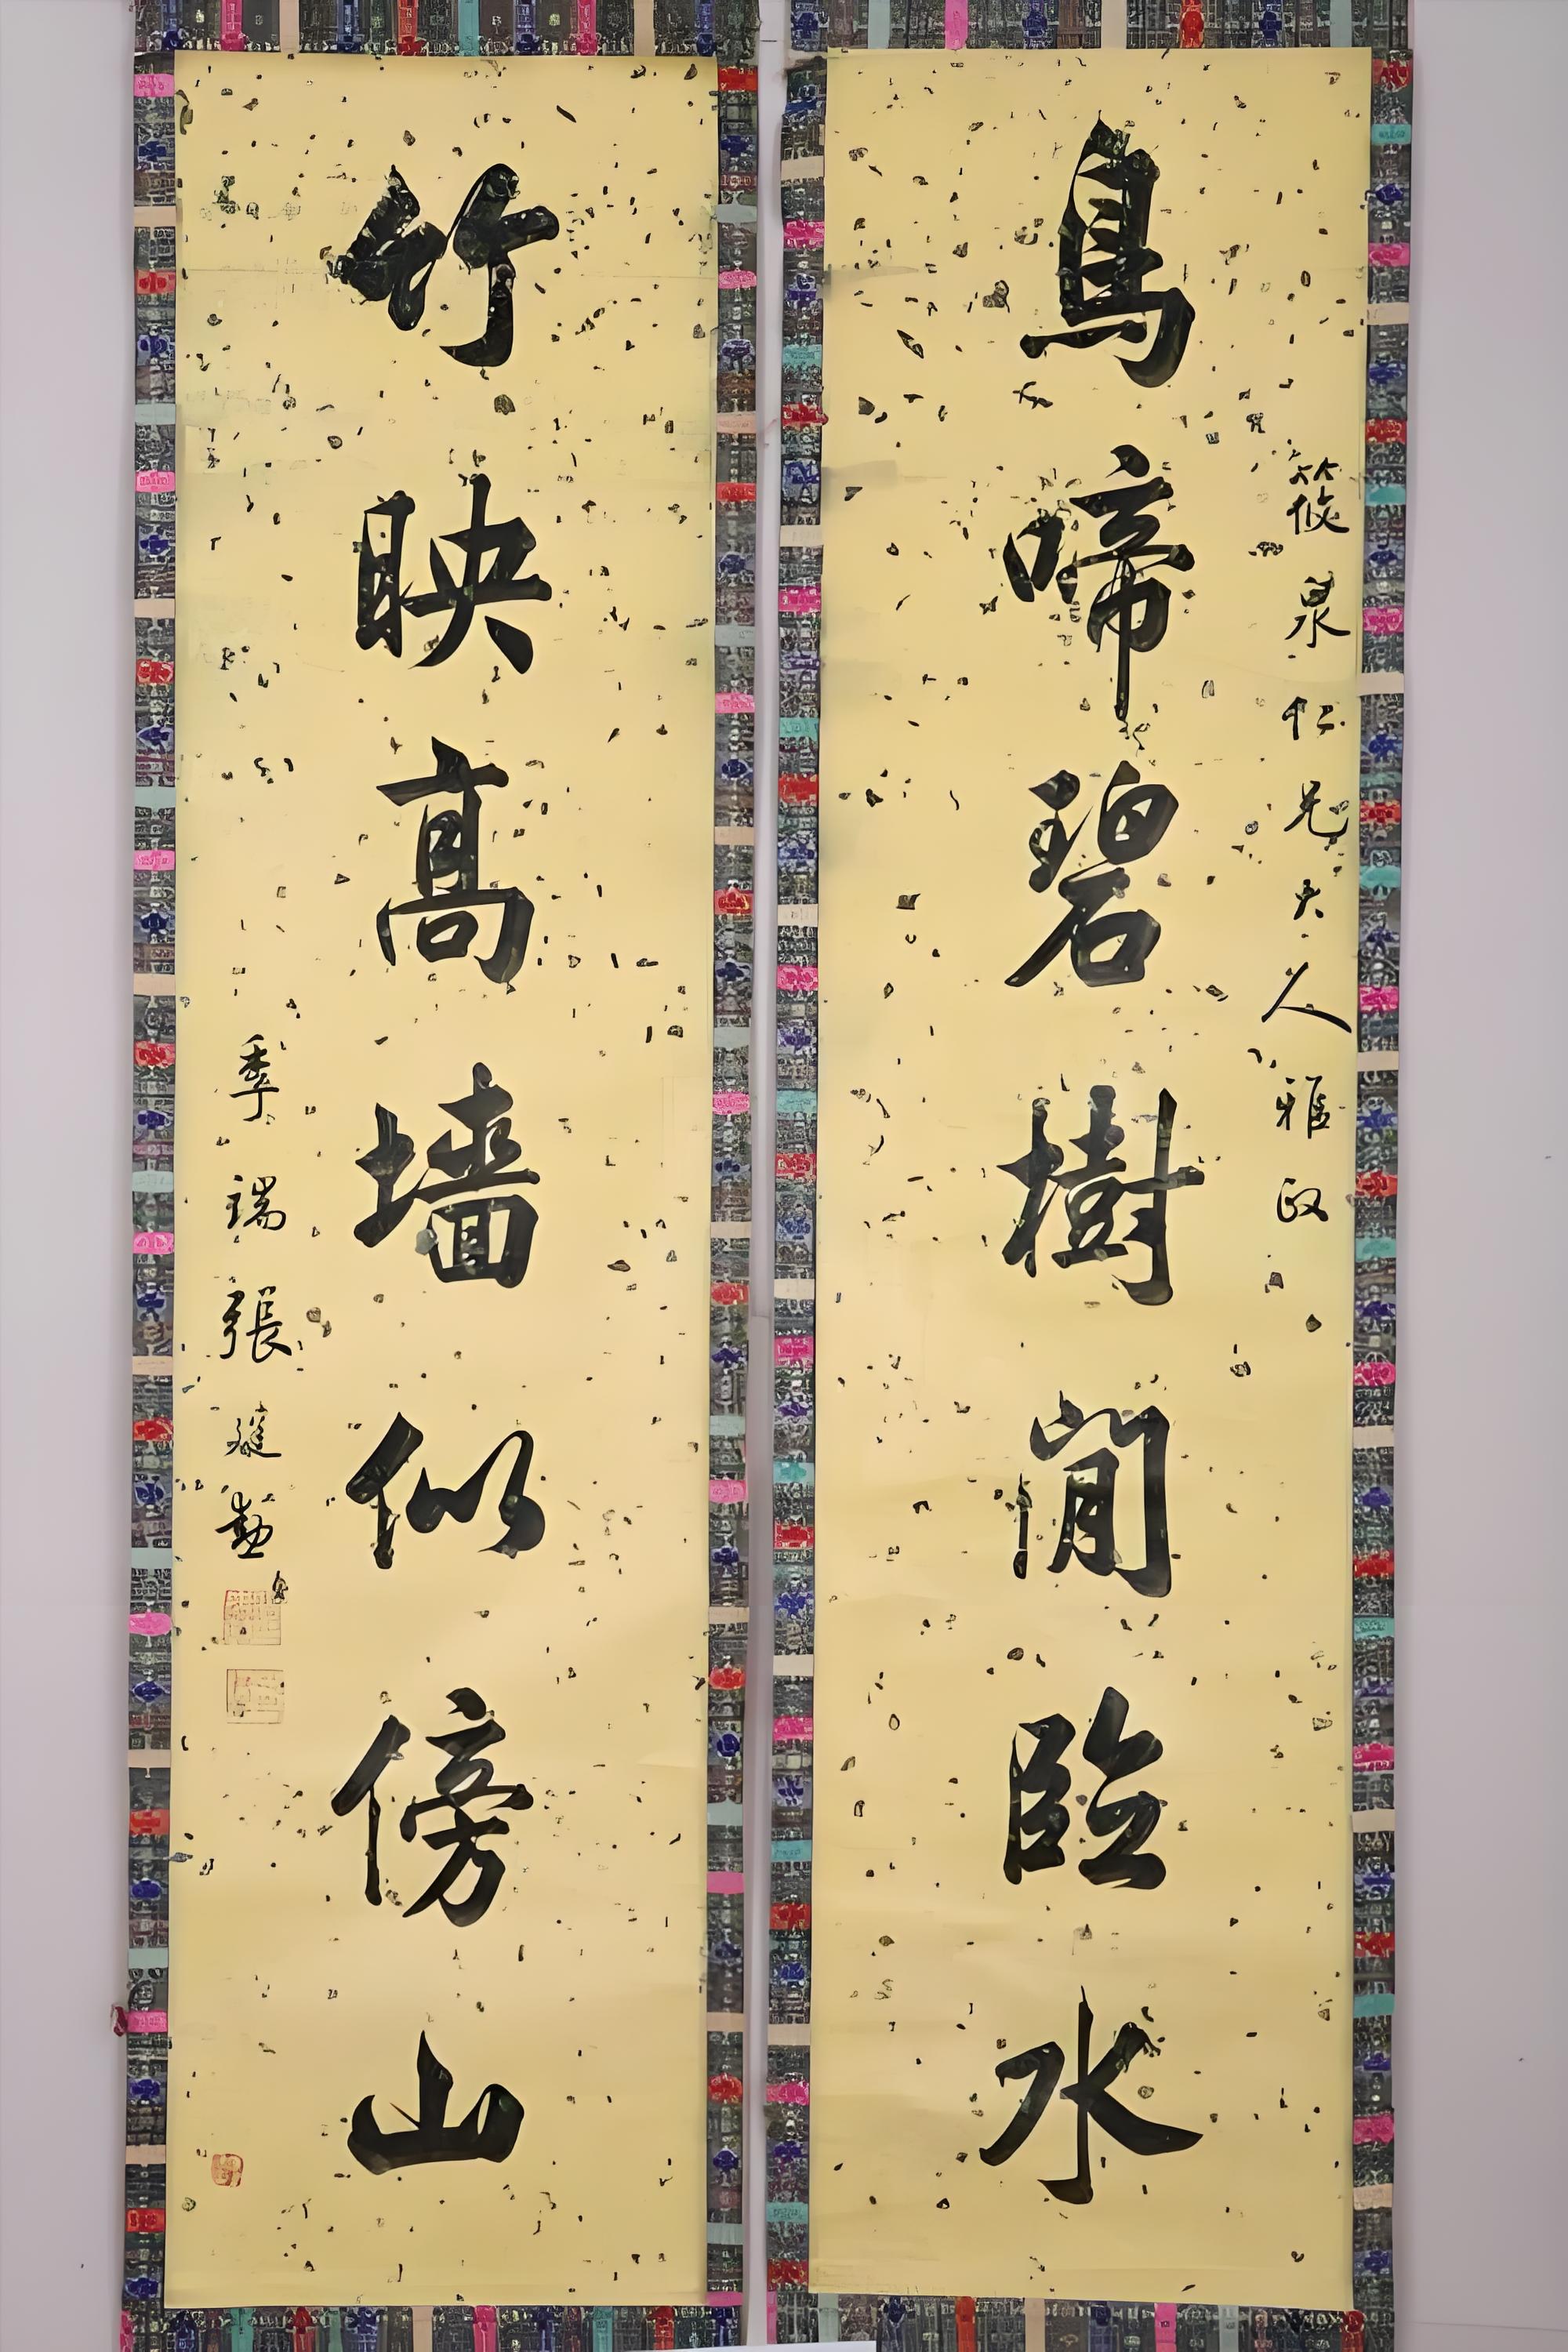 筱泉仁兄大人雅政
鳥啼碧樹閒臨水
竹映高墙似傍山
季瑞張建勳